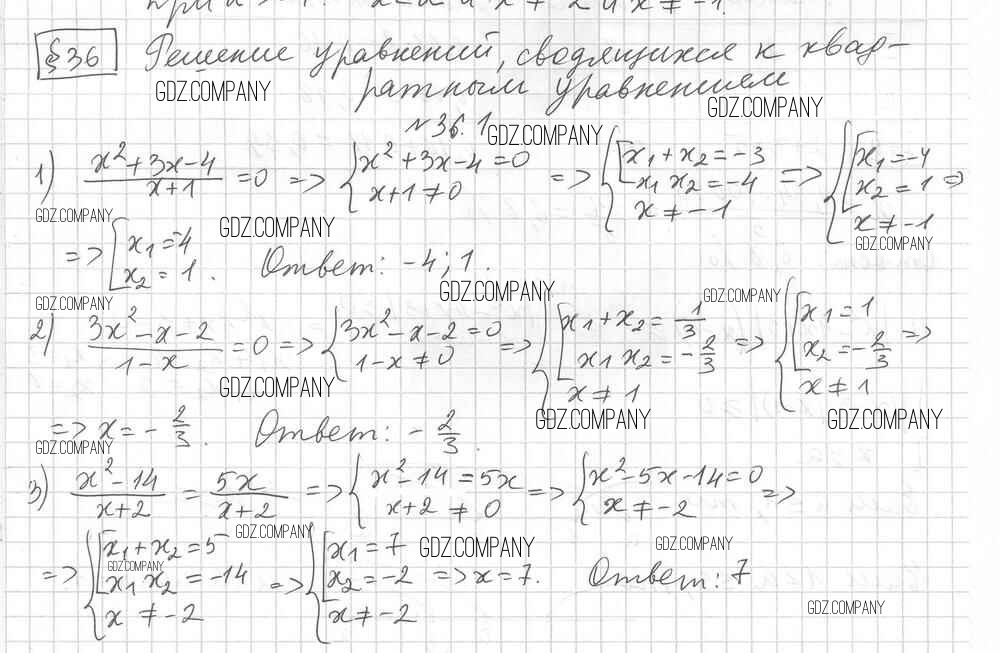 при x ≠ -1.
§36 Решение уравнений, сводящихся к квад-
ратным уравнениям
GDZ.COMPANY GDZ.COMPANY
№36.1 GDZ.COMPANY
1) (x²+3x-4)/(x+1) = 0 => { x²+3x-4=0; x+1≠0 => { [ x₁+x₂=-3; x₁x₂=-4; x≠-1 => { [ x₁=-4; x₂=1; x≠-1 =>
GDZ.COMPANY GDZ.COMPANY GDZ.COMPANY
=> [ x₁=-4; x₂=1. Ответ: -4; 1.
GDZ.COMPANY GDZ.COMPANY GDZ.COMPANY
2) (3x²-x-2)/(1-x) = 0 => { 3x²-x-2=0; 1-x≠0 => { [ x₁+x₂=1/3; x₁x₂=-2/3; x≠1 => { [ x₁=1; x₂=-2/3; x≠1 =>
GDZ.COMPANY GDZ.COMPANY GDZ.COMPANY
=> x=-2/3. Ответ: -2/3.
GDZ.COMPANY
3) (x²-14)/(x+2) = 5x/(x+2) => { x²-14=5x; x+2≠0 => { x²-5x-14=0; x≠-2 =>
GDZ.COMPANY GDZ.COMPANY GDZ.COMPANY GDZ.COMPANY
=> { [ x₁+x₂=5; x₁x₂=-14; x≠-2 => { [ x₁=7; x₂=-2; x≠-2 => x=7. Ответ: 7
GDZ.COMPANY